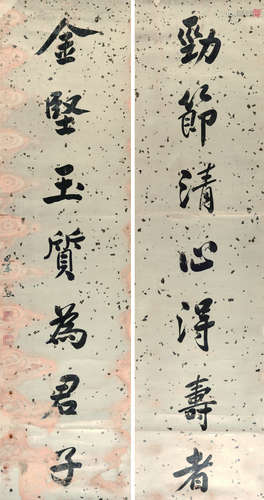 勁節清心得壽者
金堅玉質為君子